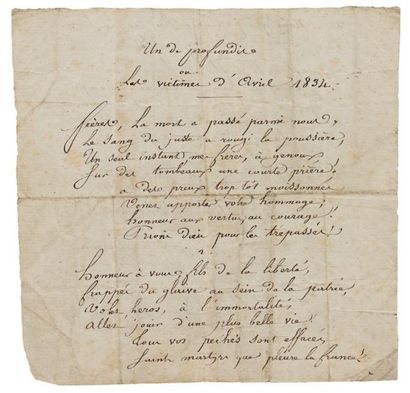 Un de profundis
ou
Les victimes d'Avril 1834
Frères, la mort a passé parmi nous,
Le sang du juste a rougi la poussière,
Un seul instant mes frères, à genoux,
Sur des tombeaux une courte prière.
a des preux trop tôt moissonnés
Venez apporter votre hommage,
honneur aux vertus, au courage !
Prions Dieu pour les trepassés !
2
honneur à vous, fils de la liberté,
frappés du glaive au sein de la patrie,
Vos heros, à l'immortalité,
Allez jouir d'une plus belle vie
Tous vos pechés sont effacés,
Saints martyrs que pleure la france !